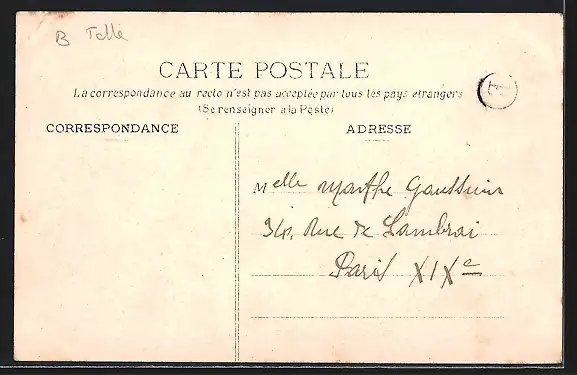 B Tellé
CARTE POSTALE
La correspondance au recto n'est pas acceptée par tous les pays étrangers
(Se renseigner à la Poste)
CORRESPONDANCE
ADRESSE
Melle Marthe Gaussuin
34, Rue de Cambrai
Paris XIXe